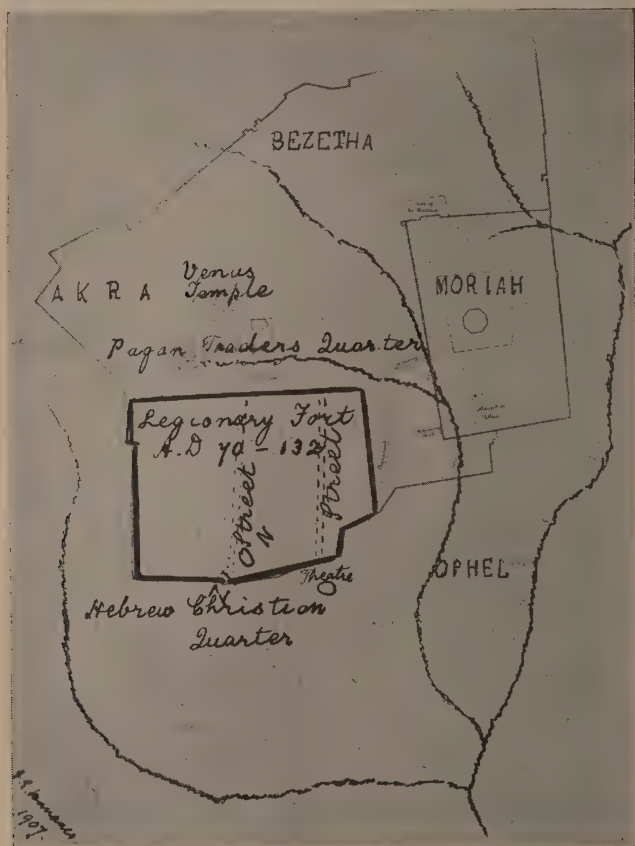 BEZETHA
AKRA
Venus
Temple
MORIAH
Pagan Traders Quarter
Legionary Fort
A.D 70 - 132
Street
Street
N
OPHEL
Theatre
Hebrew Christian
Quarter
1907.